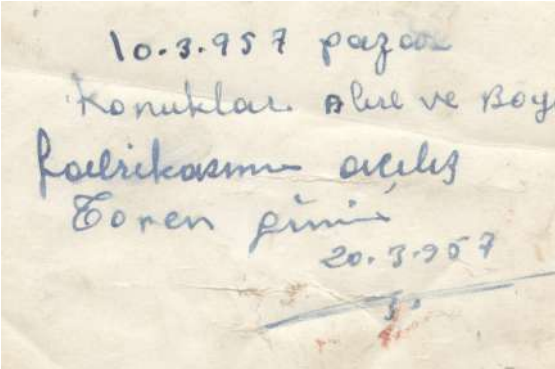 10.3.957 pazar
Konuklar ve Boy
fabrikasının açılış
Tören günü
20.3.957